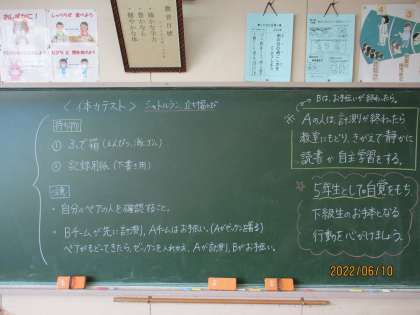 教育目標
確かな学力
豊かな心
健やかな体
<体力テスト> シャトルラン、立ち幅とび
持ち物
① ふで箱(えんぴつ、消しゴム)
② 記録用紙(下書き用)
注意
・自分のペアの人を確認すること。
・Bチームが先に計測、Aチームはお手伝い。(Aがゼッケンを着る)
ペアがもどってきたら、ゼッケンを入れかえ、Aが計測、Bがお手伝い。
Bは、お手伝いが終わったら。
※ Aの人は、計測が終わったら
教室にもどり、きがえて静かに
読書か自主学習をする。
☆ 5年生としての自覚をもち
下級生のお手本となる
行動を心がけましょう。
2022/06/10